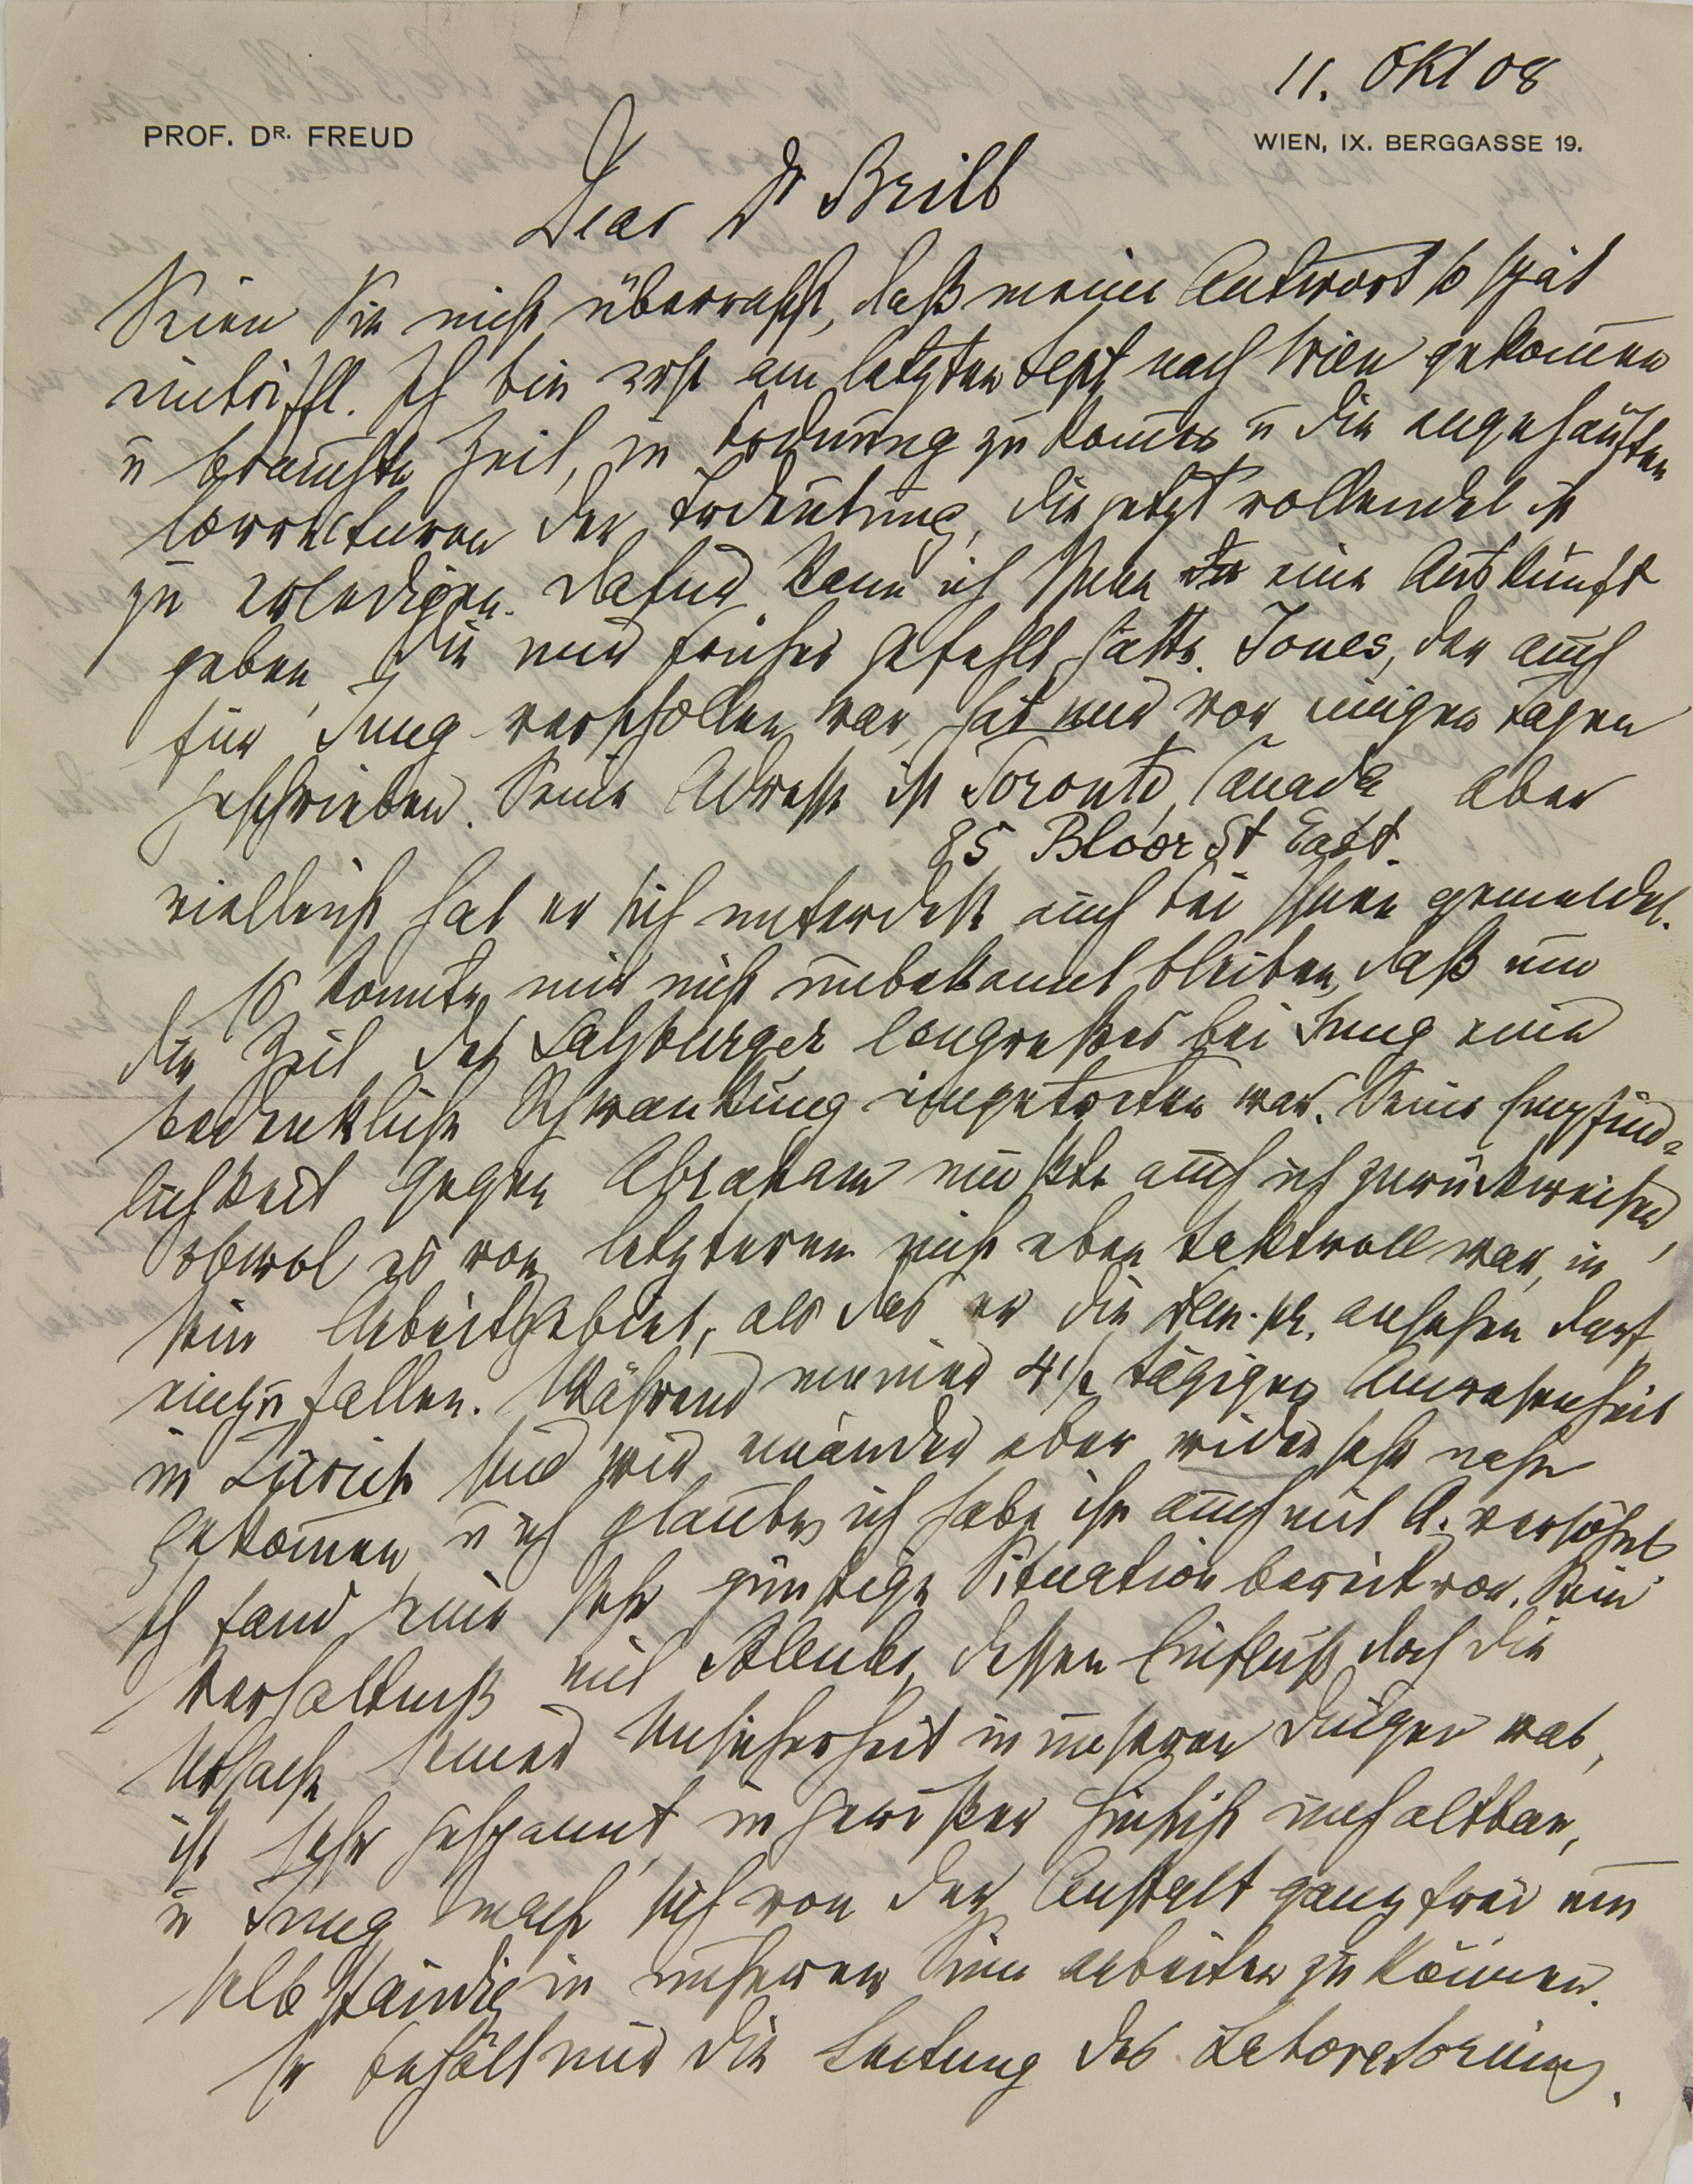 11. Okt 08
PROF. DR. FREUD
WIEN, IX. BERGGASSE 19.
Dear Dr Brill
Seien Sie nicht überrascht, daß meine Antwort so spät
eintrifft. Ich bin erst am letzten Sept nach Wien gekommen
u brauchte Zeit, in Ordnung zu kommen u die angehäuften
Correkturen der Trdeutung, die jetzt vollendet ist
zu erledigen. Dafür kann ich Ihnen eine Auskunft
geben, die mir früher gefehlt hätte. Jones, der auch
für Jung verschollen war, hat mir vor einigen Tagen
geschrieben. Seine Adresse ist Toronto, Canada aber
85 Bloor St East.
vielleicht hat er sich unterdeß auch bei Ihnen gemeldet.
Es konnte mir nicht unbekannt bleiben, daß um
die Zeit des Salzburger Congreßes bei Jung eine
bedenkliche Schwankung eingetreten war. Seine Empfind-
lichkeit gegen Abraham mußte auch ich zurückweisen,
obwol es von letzterem nicht eben taktvoll war, in
sein Arbeitsgebiet, als das er die Dem. pr. ansehen darf,
einzufallen. Während meiner 4 1/2 tägigen Anwesenheit
in Zürich sind wir einander aber wieder sehr nahe
gekommen, u ich glaube, ich habe ihn auch mit A. versöhnt
Ich fand eine sehr günstige Situation bereit vor. Sein
Verhältniß mit Bleuler, dessen Einfluß doch die
Ursache seiner Unsicherheit in unseren Dingen war,
ist sehr gespannt, in gewißer Hinsicht unhaltbar,
u Jung macht sich von der Anstalt ganz frei um
selbständig in unserem Sinn arbeiten zu können.
Er behält nur die Leitung des Laboratoriums.